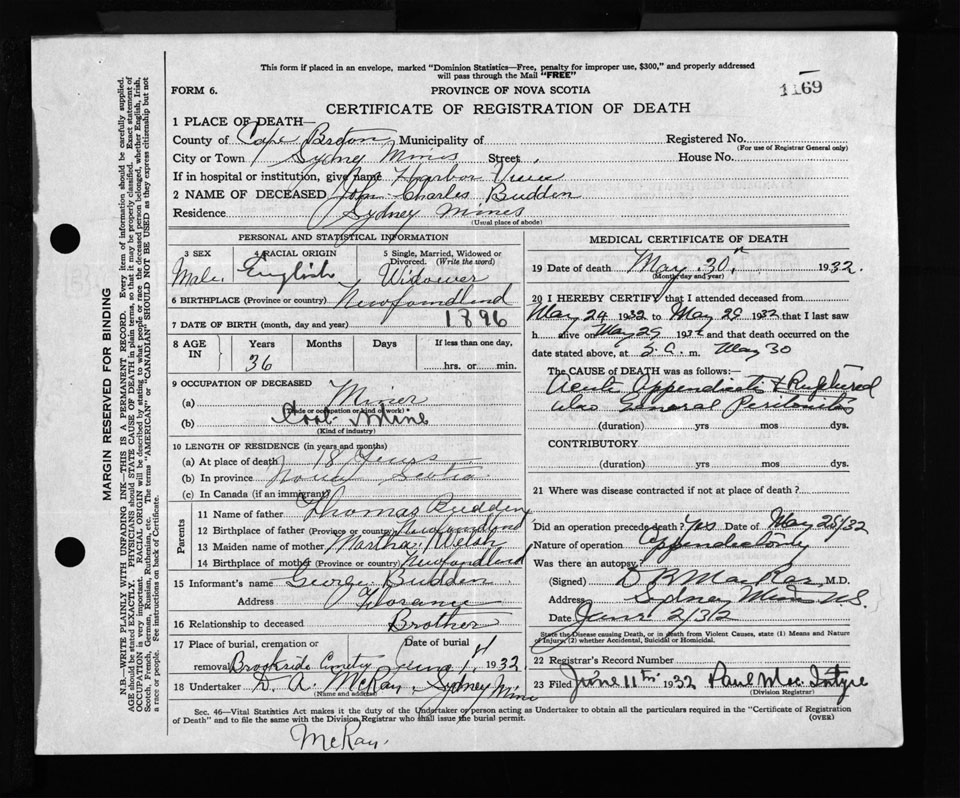 This form if placed in an envelope, marked "Dominion Statistics—Free, penalty for improper use, $300," and properly addressed
will pass through the Mail "FREE"
FORM 6.
PROVINCE OF NOVA SCOTIA
1169
CERTIFICATE OF REGISTRATION OF DEATH
1 PLACE OF DEATH—
County of Cape Breton Municipality of
Registered No.
(For use of Registrar General only)
City or Town Sydney Mines Street
House No.
If in hospital or institution, give name Harbor View
2 NAME OF DECEASED John Charles Budden
Residence Sydney Mines
(Usual place of abode)
PERSONAL AND STATISTICAL INFORMATION
3 SEX
Male
4 RACIAL ORIGIN
English
5 Single, Married, Widowed or
Divorced. (Write the word)
Widower
6 BIRTHPLACE (Province or country) Newfoundland
7 DATE OF BIRTH (month, day and year) 1896
8 AGE IN
Years Months Days If less than one day,
36 hrs. or min.
9 OCCUPATION OF DECEASED
(a) Miner
(Trade or occupation or kind of work)
(b) Coal Mine
(Kind of industry)
10 LENGTH OF RESIDENCE (in years and months)
(a) At place of death 18 Years
(b) In province Nova Scotia
(c) In Canada (if an immigrant)
Parents
11 Name of father Thomas Budden
12 Birthplace of father (Province or country) Newfoundland
13 Maiden name of mother Martha Welsh
14 Birthplace of mother (Province or country) Newfoundland
15 Informant's name George Budden
Address Florance
16 Relationship to deceased Brother
17 Place of burial, cremation or Date of burial
removal Brookside Cemetry June 1st 1932
18 Undertaker D. A. McKay, Sydney Mines
(Name and address)
MEDICAL CERTIFICATE OF DEATH
19 Date of death May 30th 1932.
(Month, day and year)
20 I HEREBY CERTIFY that I attended deceased from
May 24 1932 to May 29 1932 that I last saw
h alive on May 29 1932 and that death occurred on the
date stated above, at 5 A. m. May 30
The CAUSE OF DEATH was as follows:—
Acute Appendicitis & Ruptured
also General Peritonitis
(duration) yrs mos dys.
CONTRIBUTORY
(duration) yrs mos dys.
21 Where was disease contracted if not at place of death?
Did an operation precede death? Yes Date of May 25/32
Nature of operation Appendectomy
Was there an autopsy?
(Signed) M.D.
Address Sydney Mines NS.
Date June 2/32
State the Disease causing Death, or in death from Violent Causes, state (1) Means and Nature
of Injury, (2) whether Accidental, Suicidal or Homicidal.
22 Registrar's Record Number
23 Filed June 11th 1932 Paul Mac Intyre
(Division Registrar)
Sec. 46—Vital Statistics Act makes it the duty of the Undertaker or person acting as Undertaker to obtain all the particulars required in the "Certificate of Registration
of Death" and to file the same with the Division Registrar who shall issue the burial permit.
(OVER)
McKay.
MARGIN RESERVED FOR BINDING
N.B.—WRITE PLAINLY WITH UNFADING INK—THIS IS A PERMANENT RECORD. Every item of information should be carefully supplied.
AGE should be stated EXACTLY. PHYSICIANS should STATE CAUSE OF DEATH in plain terms, so that it may be properly classified. Exact statement of
OCCUPATION is very important. RACIAL ORIGIN will be described by stating to what people or race the deceased person belonged, whether English, Irish,
Scotch, French, German, Russian, Ruthenian, etc. The terms "AMERICAN" or "CANADIAN" SHOULD NOT BE USED as they express citizenship but not
a race or people. See instructions on back of Certificate.